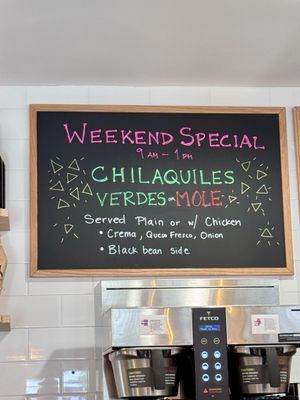 Weekend Special
9 AM - 1 PM
Chilaquiles
Verdes or Mole
Served Plain or w/ Chicken
• Crema, Queso Fresco, Onion
• Black bean side
FETCO